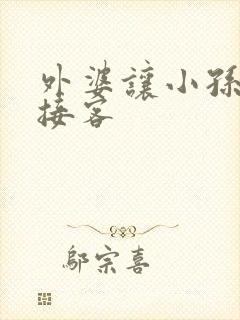 外婆讓小孫
接客
鄔宗喜